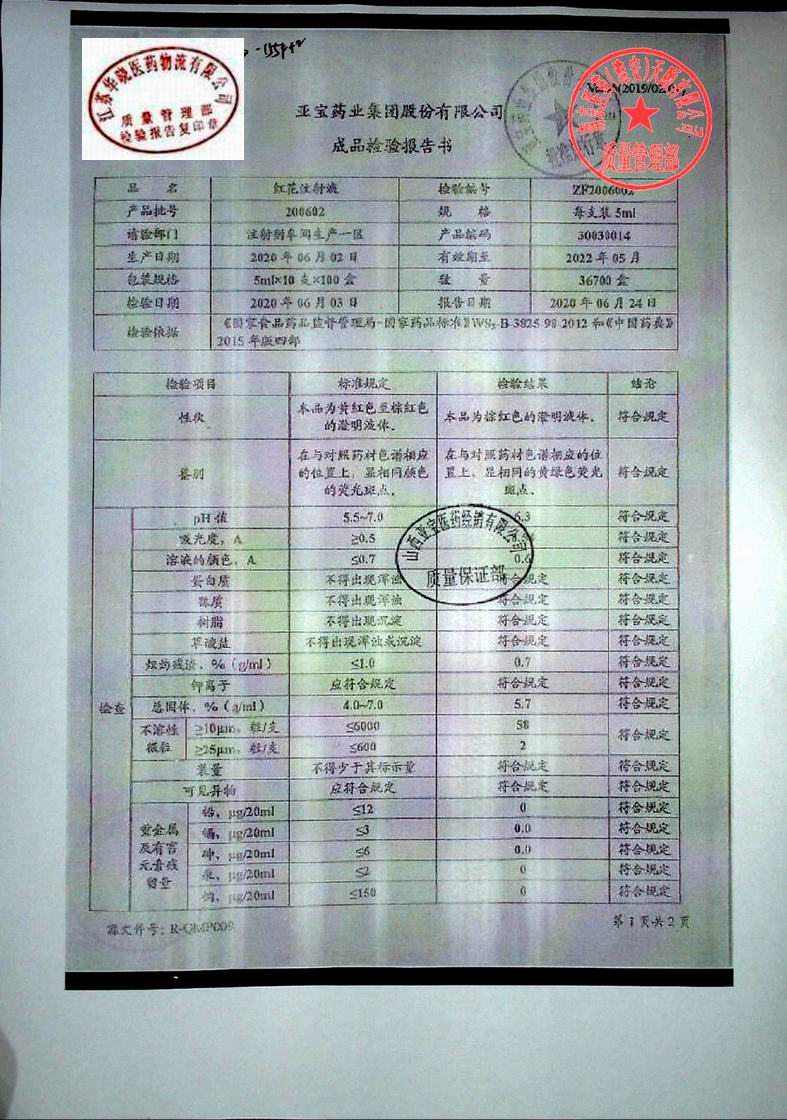 江苏华晓医药物流有限公司
质量管理部
检验报告复印章
质量管理部
亚宝药业集团股份有限公司
成品检验报告书
品 名 红花注射液 检验编号 ZF2006002
产品批号 200602 规 格 每支装5ml
请验部门 注射剂车间生产一区 产品编码 30030014
生产日期 2020年06月02日 有效期至 2022年05月
包装规格 5ml×10支×100盒 数 量 36700盒
检验日期 2020年06月03日 报告日期 2020年06月24日
检验依据 《国家食品药品监督管理局-国家药品标准》WS₃-B-3825-98-2012和《中国药典》
2015年版四部
检验项目 标准规定 检验结果 结论
性状 本品为黄红色至棕红色的澄明液体。 本品为棕红色的澄明液体。 符合规定
鉴别 在与对照药材色谱相应的位置上,显相同颜色的荧光斑点。 在与对照药材色谱相应的位置上,显相同的黄绿色荧光斑点。 符合规定
检查
pH值 5.5~7.0 6.3 符合规定
吸光度,A ≥0.5 符合规定
溶液的颜色,A ≤0.7 符合规定
山西亚宝医药经销有限公司
质量保证部
蛋白质 不得出现浑浊 符合规定 符合规定
鞣质 不得出现浑浊 符合规定 符合规定
树脂 不得出现沉淀 符合规定 符合规定
草酸盐 不得出现浑浊或沉淀 符合规定 符合规定
炽灼残渣,%(g/ml) ≤1.0 0.7 符合规定
钾离子 应符合规定 符合规定 符合规定
总固体,%(g/ml) 4.0~7.0 5.7 符合规定
不溶性微粒 ≥10μm,粒/支 ≤6000 58 符合规定
≥25μm,粒/支 ≤600 2
装量 不得少于其标示量 符合规定 符合规定
可见异物 应符合规定 符合规定 符合规定
重金属及有害元素残留量
铅,μg/20ml ≤12 0 符合规定
镉,μg/20ml ≤3 0.0 符合规定
砷,μg/20ml ≤6 0.0 符合规定
汞,μg/20ml ≤2 0 符合规定
铜,μg/20ml ≤150 0 符合规定
源文件号:R-QMP009
第1页共2页